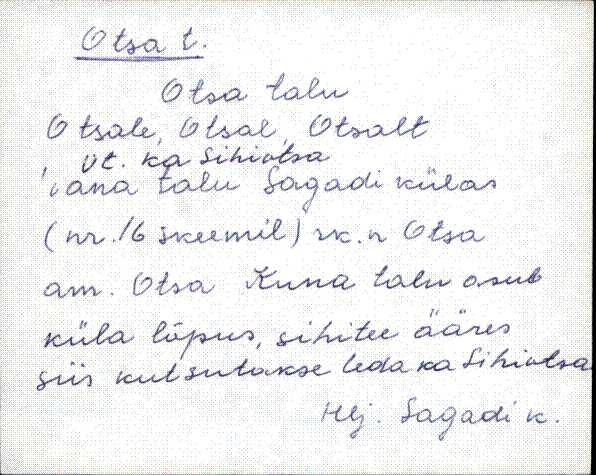 Otsa t.
Otsa talu
Otsale, Otsal, Otsalt
, vt. ka Sihiotsa
vana talu Sagadi külas
(nr. 16 skeemil) rk. n Otsa
am. Otsa Kuna talu asub
küla lõpus, sihitee ääres
siis kutsutakse teda ka Sihiotsa
Hlj. Sagadi k.